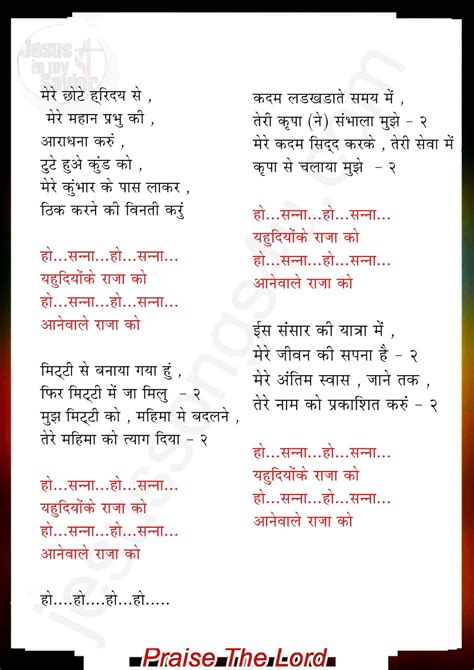 Jesus
is my
Savior
मेरे छोटे हरिदय से ,
मेरे महान प्रभु की ,
आराधना करुं ,
टुटे हुअे कुंड को ,
मेरे कुंभार के पास लाकर ,
ठिक करने की विनती करुं
हो...सन्ना...हो...सन्ना...
यहुदियोंके राजा को
हो...सन्ना...हो...सन्ना...
आनेवाले राजा को
मिट्टी से बनाया गया हुं ,
फिर मिट्टी में जा मिलु - २
मुझ मिट्टी को , महिमा मे बदलने ,
तेरे महिमा को त्याग दिया - २
हो...सन्ना...हो...सन्ना...
यहुदियोंके राजा को
हो...सन्ना...हो...सन्ना...
आनेवाले राजा को
हो....हो....हो...हो.....
कदम लडखडाते समय में ,
तेरी कृपा (ने) संभाला मुझे - २
मेरे कदम सिद्द करके , तेरी सेवा में
कृपा से चलाया मुझे - २
हो...सन्ना...हो...सन्ना...
यहुदियोंके राजा को
हो...सन्ना...हो...सन्ना...
आनेवाले राजा को
ईस संसार की यात्रा में ,
मेरे जीवन की सपना है - २
मेरे अंतिम स्वास , जाने तक ,
तेरे नाम को प्रकाशित करुं - २
हो...सन्ना...हो...सन्ना...
यहुदियोंके राजा को
हो...सन्ना...हो...सन्ना...
आनेवाले राजा को
Praise The Lord